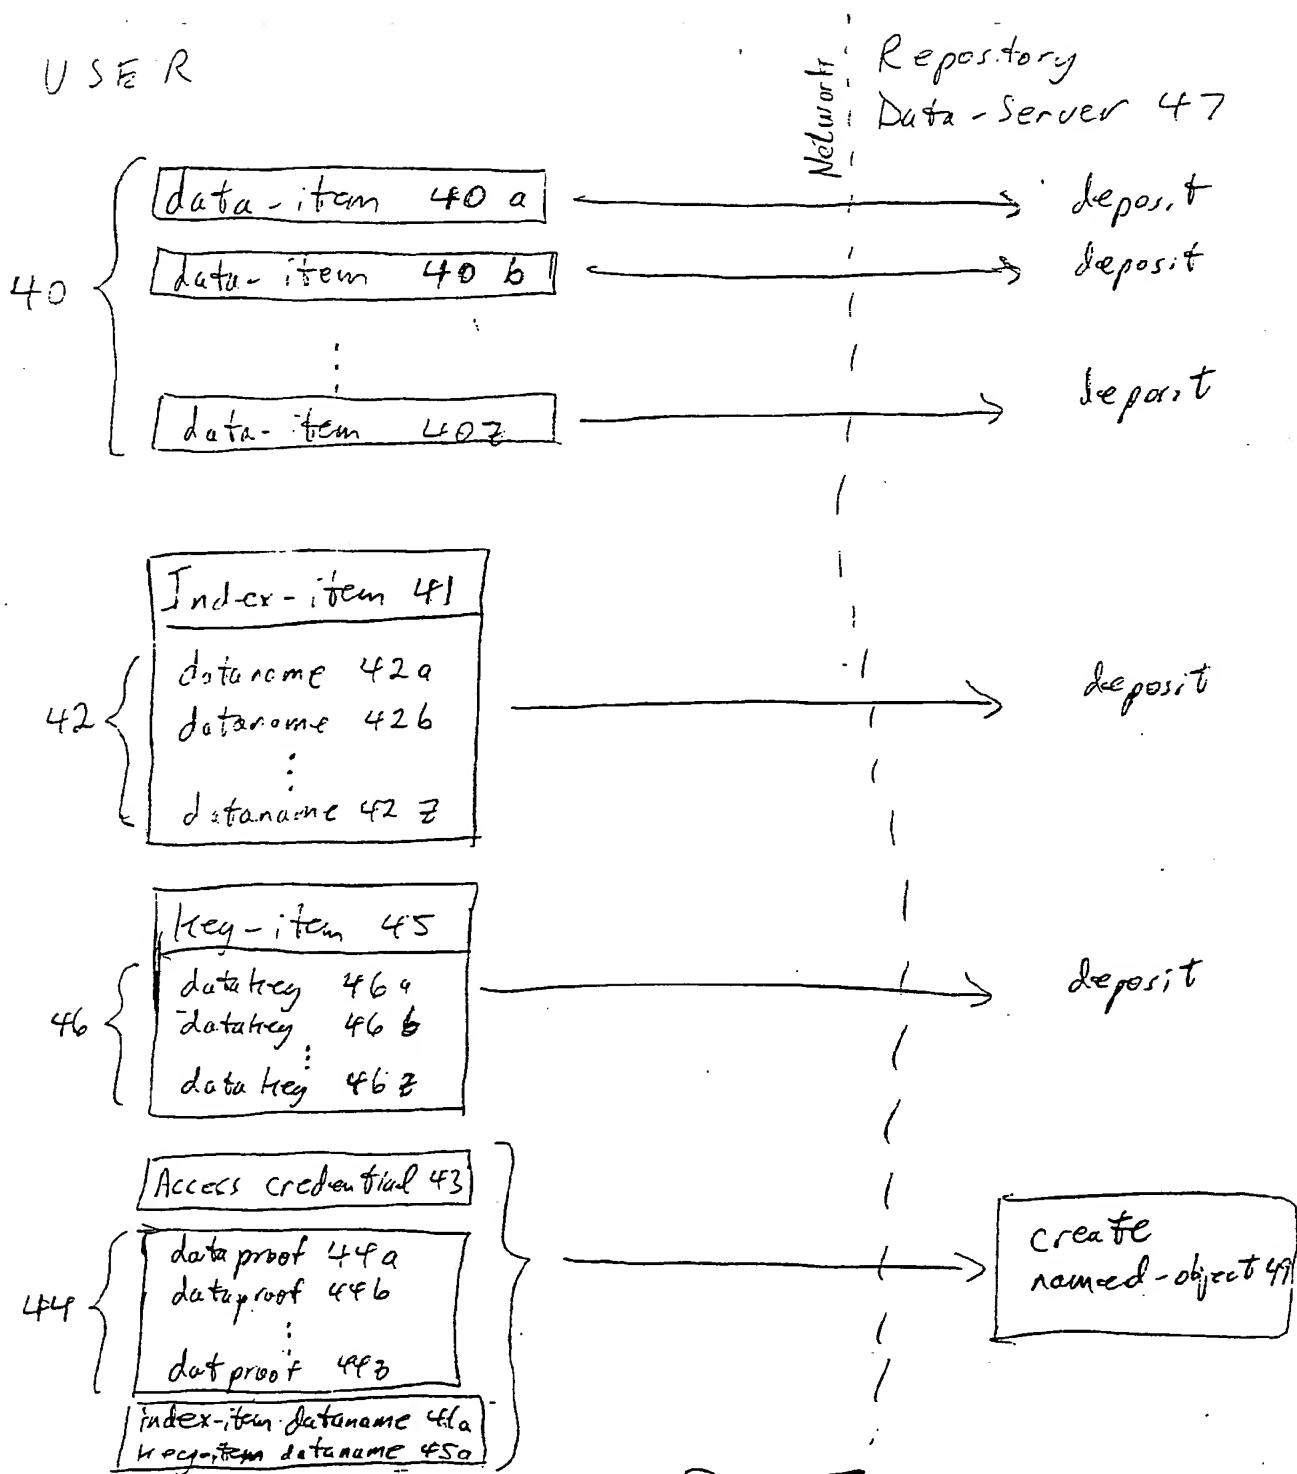 USER
Network
Repository
Data-Server 47
40
data-item 40 a
deposit
data-item 40 b
deposit
data-item 40z
deposit
Index-item 41
42
dataname 42a
dataname 42b
dataname 42 z
deposit
key-item 45
46
datakey 46 a
datakey 46 b
datakey 46 z
deposit
Access credential 43
44
dataproof 44a
dataproof 44b
datproof 44z
index-item dataname 41a
key-item dataname 45a
create
named-object 49